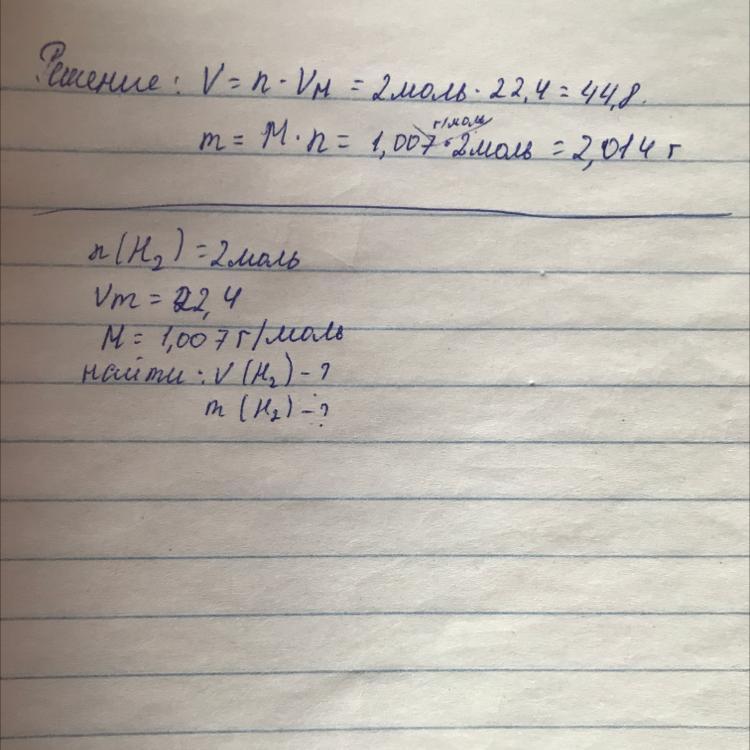 Решение: V = n · Vм = 2моль · 22,4 = 44,8.
г/моль
m = M · n = 1,007 · 2моль = 2,014 г
n(H₂) = 2моль
Vm = 22,4
M = 1,007 г/моль
найти: V (H₂) - ?
m (H₂) - ?